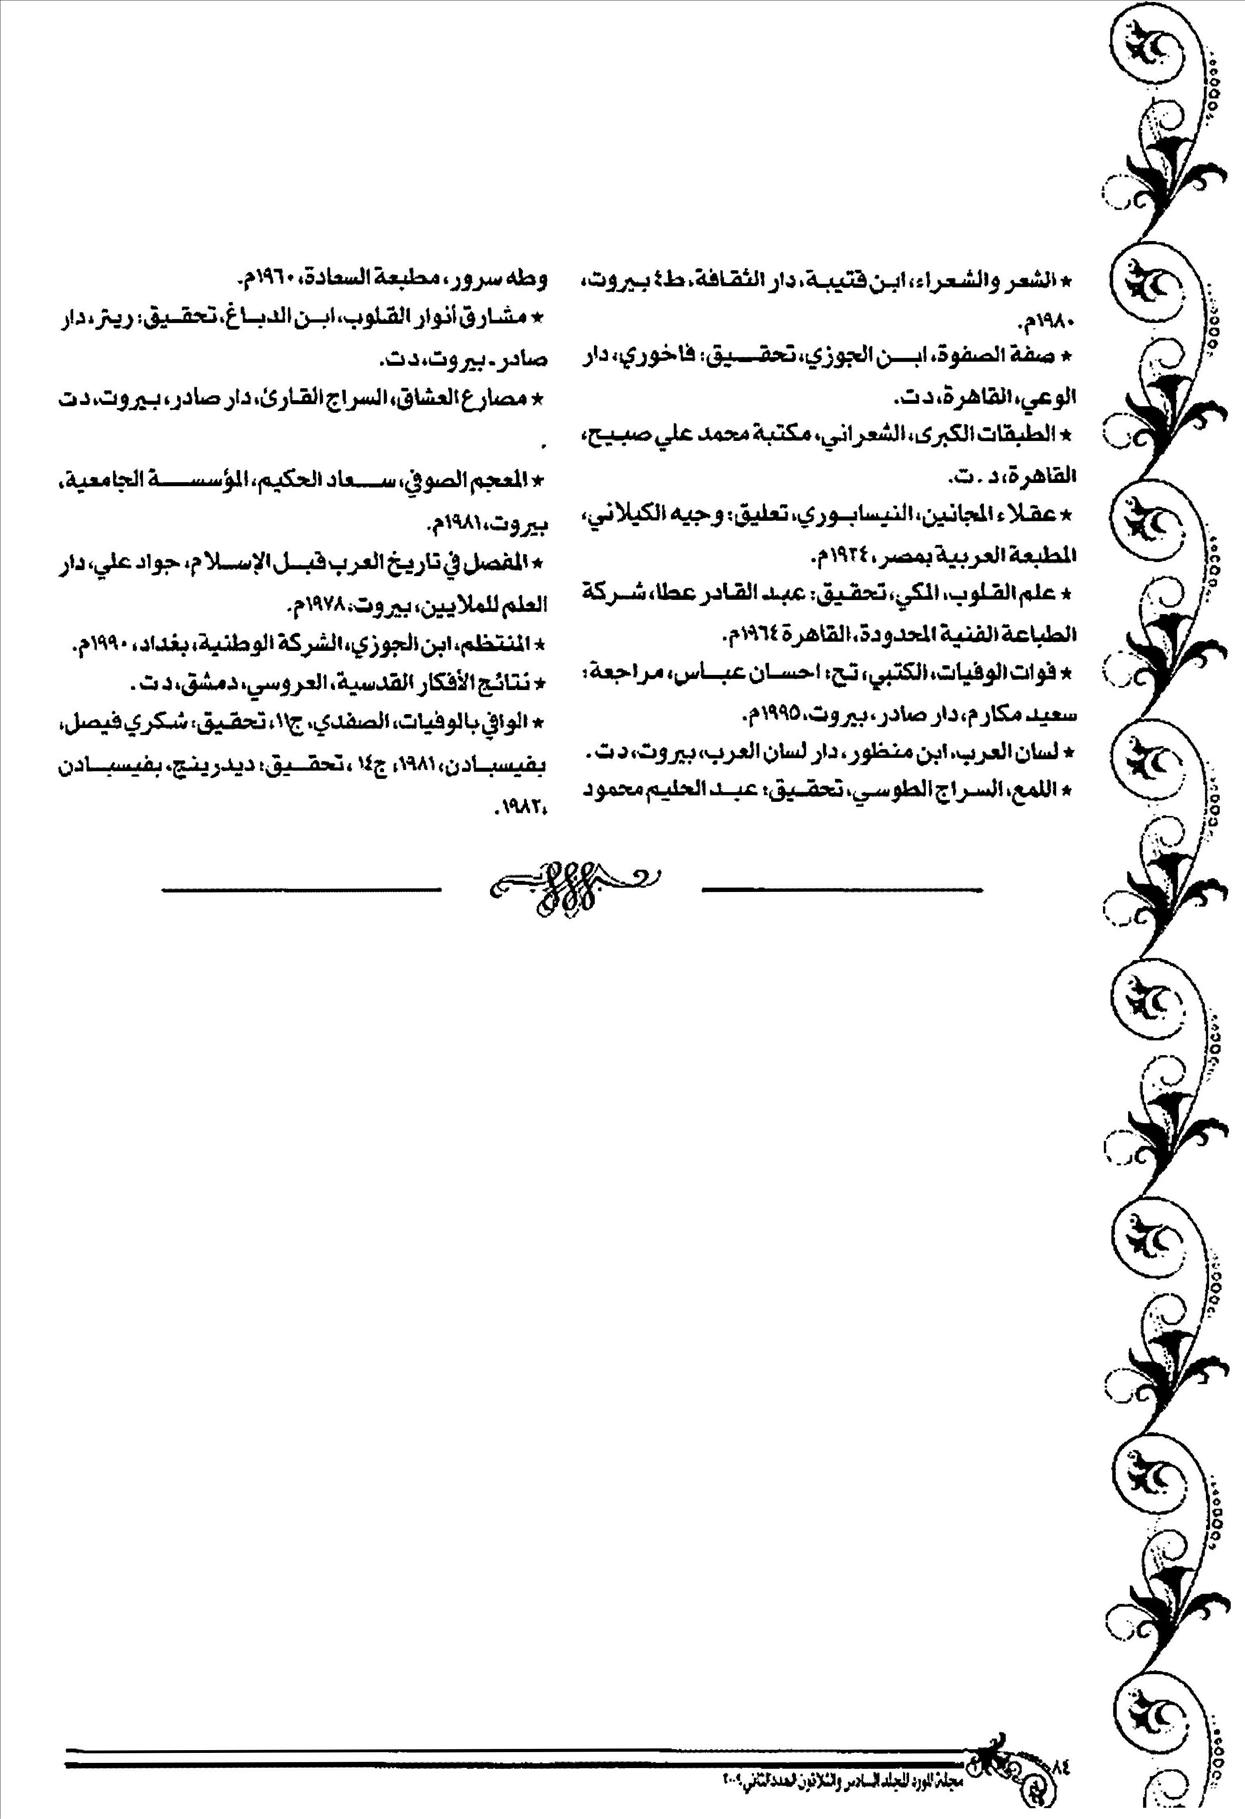 * الشعر والشعراء، ابن قتيبة، دار الثقافة، ط٤ بيروت،
١٩٨٠م.
* صفة الصفوة، ابن الجوزي، تحقيق: فاخوري، دار
الوعي، القاهرة، د ت.
* الطبقات الكبرى، الشعراني، مكتبة محمد علي صبيح،
القاهرة، د . ت.
* عقلاء المجانين، النيسابوري، تعليق: وجيه الكيلاني،
المطبعة العربية بمصر، ١٩٢٤م.
* علم القلوب، المكي، تحقيق: عبد القادر عطا، شركة
الطباعة الفنية المحدودة، القاهرة ١٩٦٤م.
* فوات الوفيات، الكتبي، تح: احسان عباس، مراجعة:
سعيد مكارم، دار صادر، بيروت، ١٩٩٥م.
* لسان العرب، ابن منظور، دار لسان العرب، بيروت، د ت .
* اللمع، السراج الطوسي، تحقيق: عبد الحليم محمود
وطه سرور، مطبعة السعادة، ١٩٦٠م.
* مشارق أنوار القلوب، ابن الدباغ، تحقيق: ريتر، دار
صادر ـ بيروت، د ت.
* مصارع العشاق، السراج القارئ، دار صادر، بيروت، د ت
.
* المعجم الصوفي، سعاد الحكيم، المؤسسة الجامعية،
بيروت، ١٩٨١م.
* المفصل في تاريخ العرب قبل الإسلام، جواد علي، دار
العلم للملايين، بيروت، ١٩٧٨م.
* المنتظم، ابن الجوزي، الشركة الوطنية، بغداد، ١٩٩٠م.
* نتائج الأفكار القدسية، العروسي، دمشق، د ت .
* الوافي بالوفيات، الصفدي، ج١١، تحقيق: شكري فيصل،
بفيسبادن، ١٩٨١، ج١٤ ، تحقيق: ديدرينج، بفيسبادن
،١٩٨٢ .
٨٤
مجلة المورد المجلد السادس والثلاثون العدد الثاني ٢٠٠٩